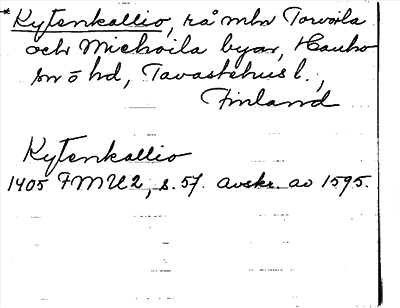 *Kytenkallio, rå mhn Torvoila
och Michoila byar, Hauho
sn o hd, Tavastehus l.,
Finland
Kytenkallio
1405 FMU2, s. 57. avskr. av 1595.